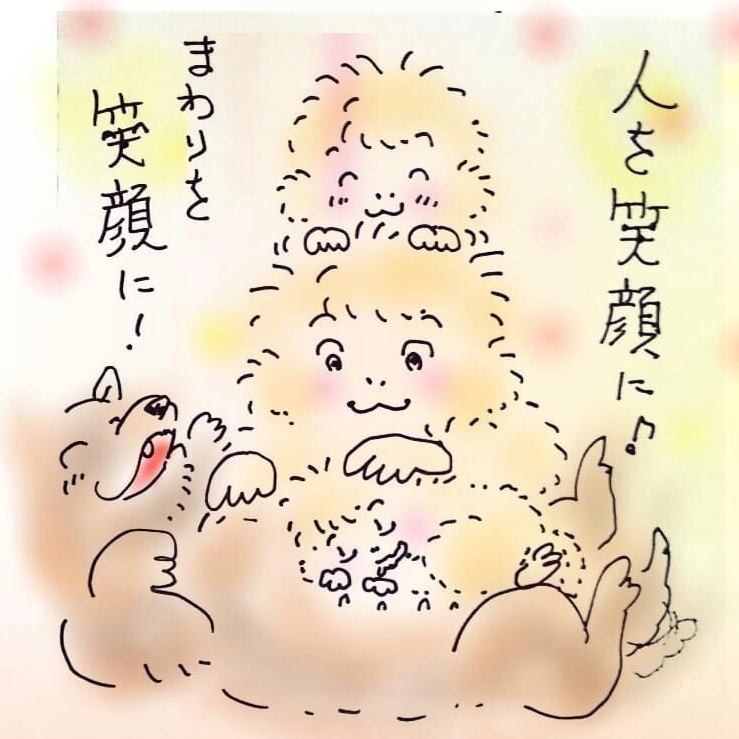 人を笑顔に♪
まわりを
笑顔に！